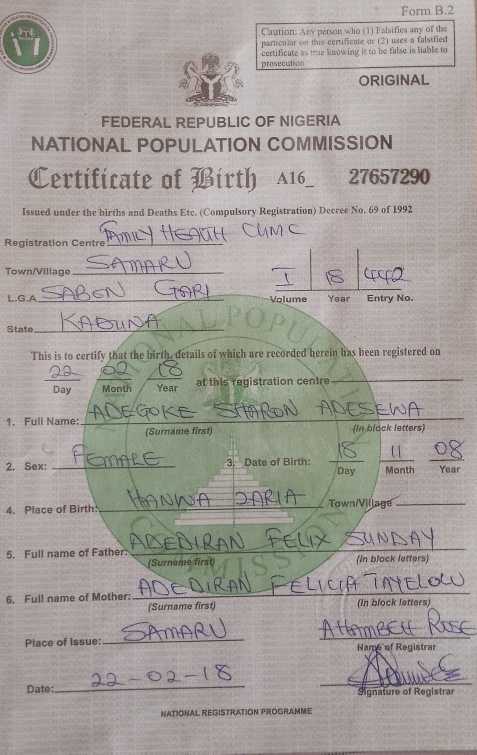 Form B.2
Caution: Any person who (1) Falsifies any of the
particular on this certificate or (2) uses a falsified
certificate as true knowing it to be false is liable to
prosecution
ORIGINAL
FEDERAL REPUBLIC OF NIGERIA
NATIONAL POPULATION COMMISSION
Certificate of Birth A16_ 27657290
Issued under the births and Deaths Etc. (Compulsory Registration) Decree No. 69 of 1992
Registration Centre FAMILY HEALTH CLINIC
Town/Village SAMARU
I 18 442
L.G.A SABON GARI
Volume Year Entry No.
State KADUNA
This is to certify that the birth, details of which are recorded herein has been registered on
22 02 18 at this registration centre
Day Month Year
1. Full Name: ADEGOKE SHARON ADESEWA
(Surname first) (In block letters)
2. Sex: FEMALE 3. Date of Birth: 18 11 08
Day Month Year
4. Place of Birth: HANWA ZARIA Town/Village
5. Full name of Father: ADEDIRAN FELIX SUNDAY
(Surname first) (In block letters)
6. Full name of Mother: ADEDIRAN FELICIA
(Surname first) (In block letters)
Place of Issue: SAMARU ROSE
Name of Registrar
Date: 22-02-18
Signature of Registrar
NATIONAL REGISTRATION PROGRAMME